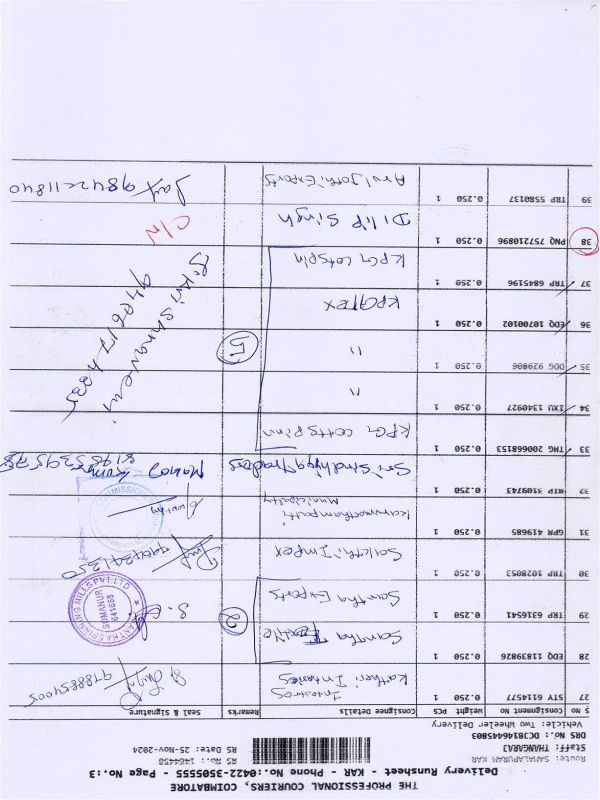 THE PROFESSIONAL COURIERS, COIMBATORE
Delivery Runsheet - KAR - Phone No.:0422-3505555 - Page No.:3
Route: SAMALAPURAM KAR
Staff: THANGARAJ
DRS No.: DCJB146445803
Vehicle: Two Wheeler Delivery
RS No.: 1464458
RS Date: 25-Nov-2024
S No Consignment No Weight PCS Consignee Details Remarks Seal & Signature
27 STY 6114577 0.250 1 Katheri Interies 9788854005
28 EDQ 11839826 0.250 1 Santha Textile
29 TRP 6316541 0.250 1 Santha Exports 2
30 TRP 1028053 0.250 1 Sakthi Impex
31 GPM 419685 0.250 1 Karumathampatti Municipality
32 MTP 3109743 0.250 1 Sri Sindhiyya Traders Manoj Kumar
33 TMG 200668153 0.250 1 KPG Cottspinn
34 IXU 1340927 0.250 1 "
35 DDG 929806 0.250 1 " 5
36 EDQ 10700102 0.250 1 KPGTEX
37 TRP 6845196 0.250 1 KPG Cotspin
38 PNQ 757210896 0.250 1 Dilip Singh C/N
39 TRP 5580137 0.250 1 Arul Jothi Exports
SANTHA SPINNING MILLS PVT.LTD
SOMANUR
641668